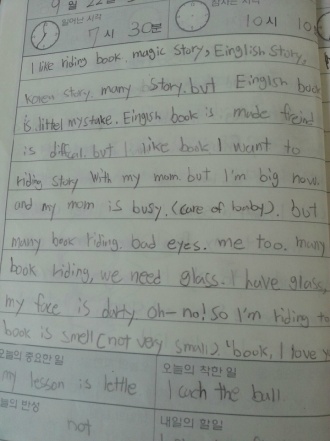 9월 22
일어난 시각
7시 30분
10시 10
I like riding book. magic story, Einglish story,
korea story. many story. but Einglish book
is littel mystake. Eingish book is made freind
is difficul. but I like book I want to
riding story with my mom. but I'm big now.
and my mom is busy. (care of tomby). but
many book riding. bad eyes. me too. many
book riding, we need glass. I have glass,
my face is durty oh-no! So I'm riding to
book is smell (not very small). "book, I love y
오늘의 중요한 일
오늘의 착한 일
my lesson is lettle
I cach the ball
늘의 반성
내일의 할일
not